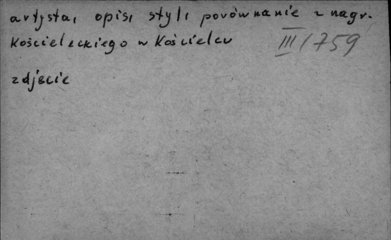 artysta, opis, styl i porównanie z nagr.
Kościeleckiego w Kościelcu
III/759
zdjęcie